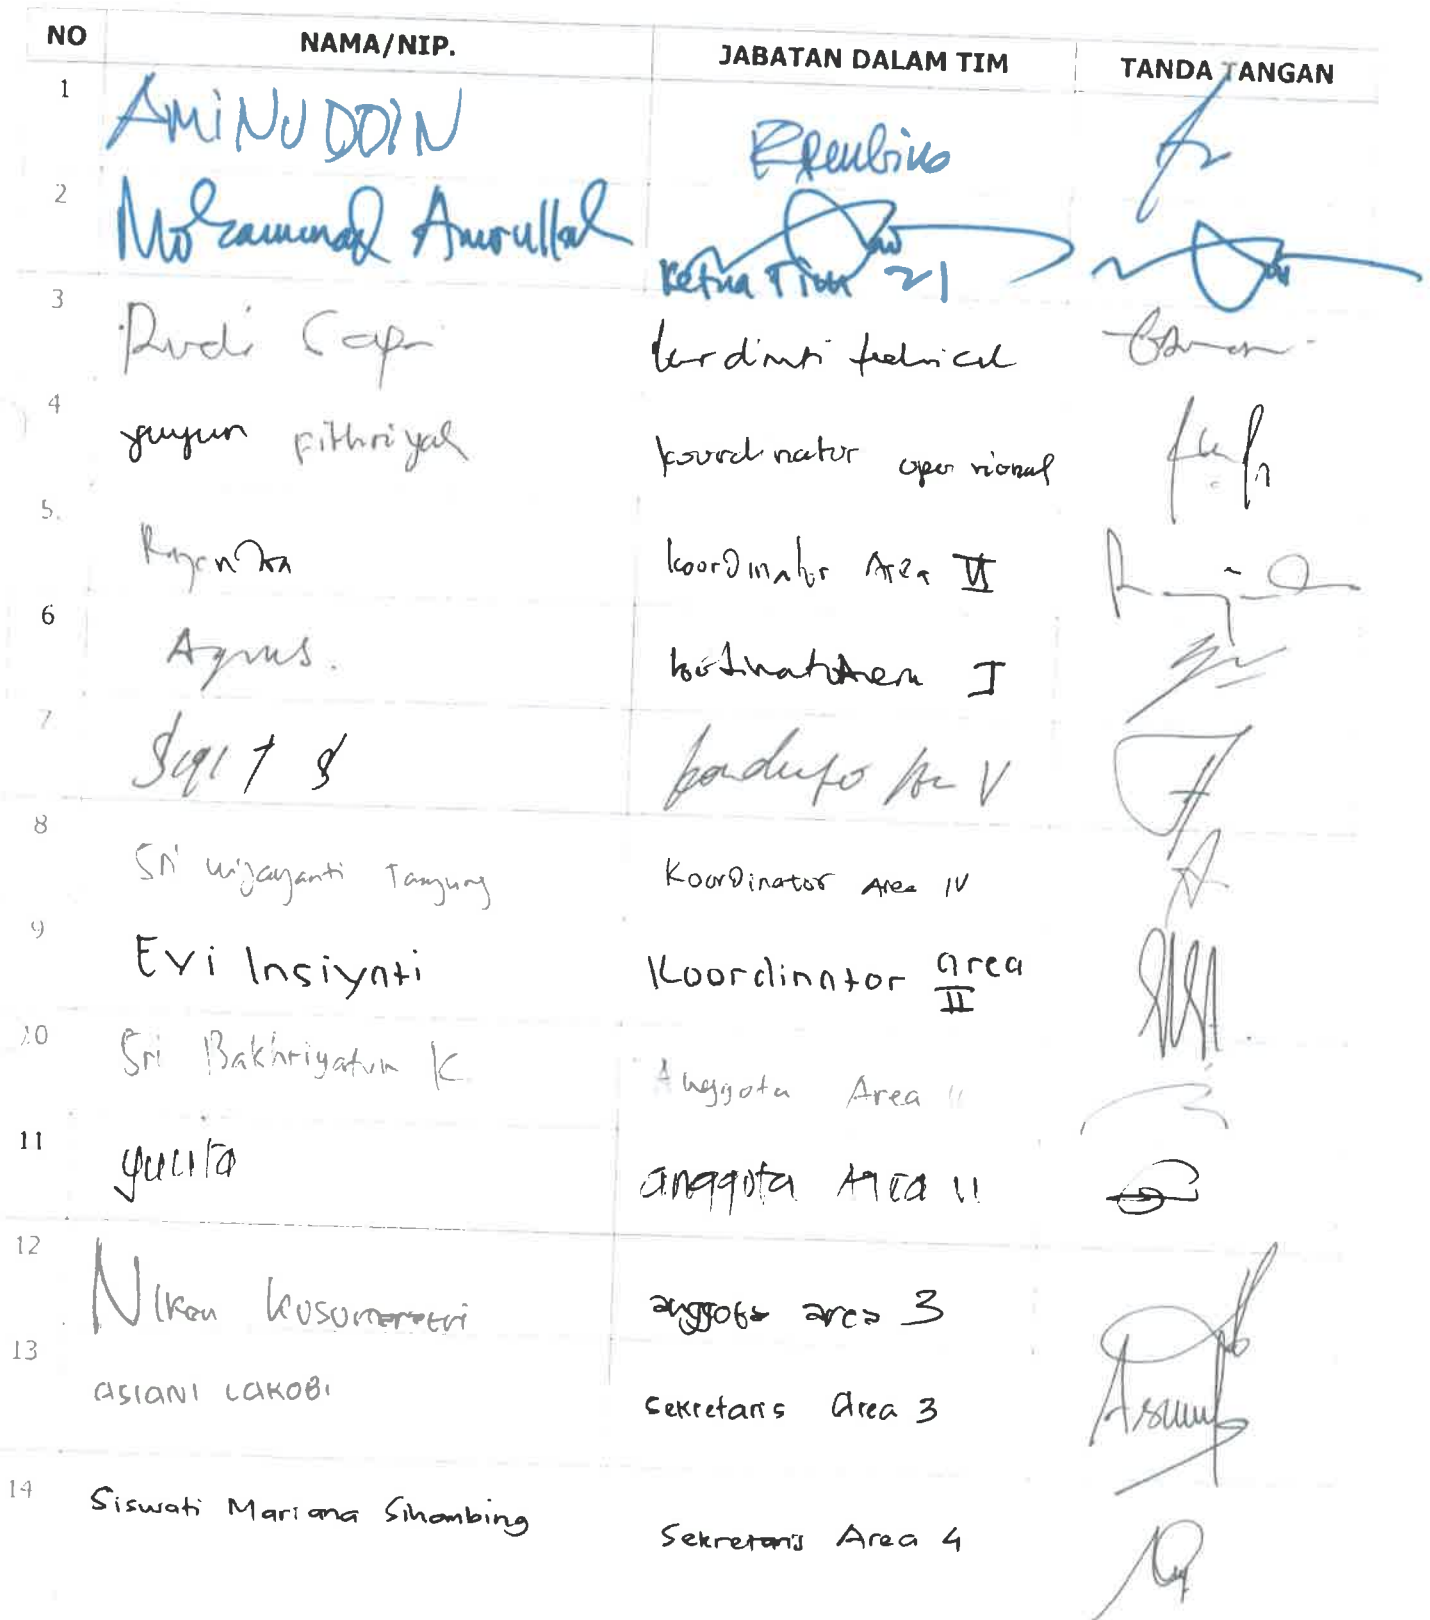 NO NAMA/NIP. JABATAN DALAM TIM TANDA TANGAN
1 AMINUDDIN
2 Mohammad Amrullah Ketua Tim 21
3 Rudi
4 yuyun fithriyah koordinator
5. koordinator Area VI
6 Agus. I
7 Sigit S V
8 Sri wijayanti Tanjung Koordinator Area IV
9 Evi Insiyati Koordinator area II
10 Sri Bakhriyatun K Anggota Area II
11 yulita anggota Area II
12 Niken anggota area 3
13 ASIANI LAKOBI Sekretaris Area 3
14 Siswati Mariana Sihombing Sekretaris Area 4